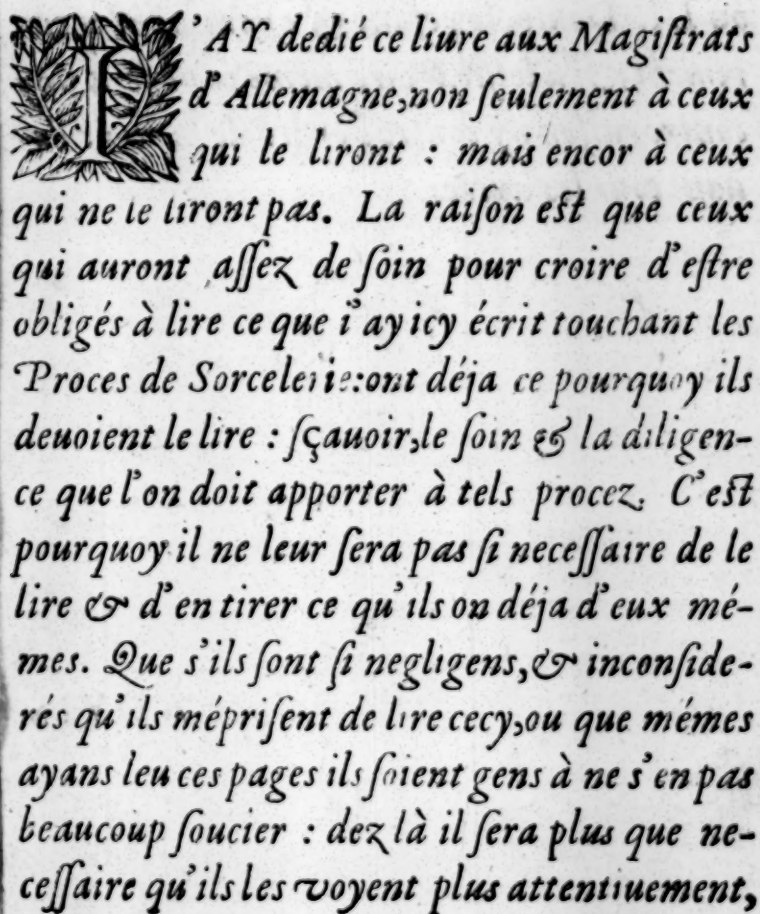 I'AY dedié ce liure aux Magiſtrats
d'Allemagne,non ſeulement à ceux
qui le liront : mais encor à ceux
qui ne le liront pas. La raiſon eſt que ceux
qui auront aſſez de ſoin pour croire d'eſtre
obligés à lire ce que i'ay icy écrit touchant les
Proces de Sorcelerie:ont déja ce pourquoy ils
deuoient le lire : ſçauoir,le ſoin & la diligen-
ce que l'on doit apporter à tels procez. C'eſt
pourquoy il ne leur ſera pas ſi neceſſaire de le
lire & d'en tirer ce qu'ils on déja d'eux mé-
mes. Que s'ils ſont ſi negligens,& inconſide-
rés qu'ils mépriſent de lire cecy,ou que mémes
ayans leu ces pages ils ſoient gens à ne s'en pas
beaucoup ſoucier : dez là il ſera plus que ne-
ceſſaire qu'ils les voyent plus attentiuement,